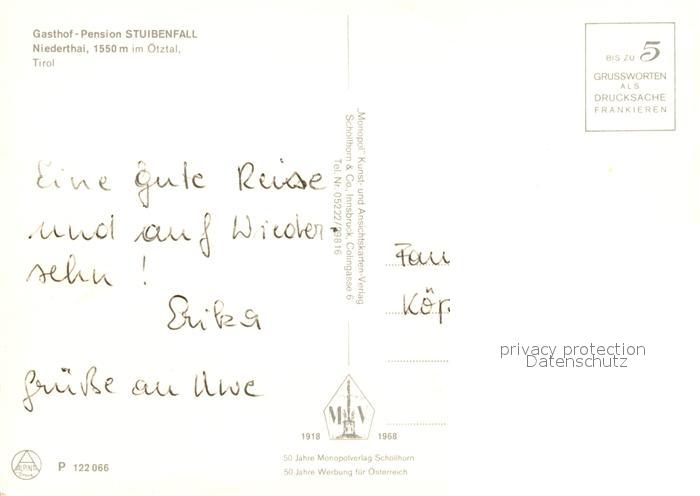 Gasthof-Pension STUIBENFALL
Niederthai, 1550 m im Ötztal,
Tirol
BIS ZU 5
GRUSSWORTEN
ALS
DRUCKSACHE
FRANKIEREN
Eine gute Reise
und auf Wieder-
sehn !
Erika
Grüße an Uwe
„Monopol" Kunst- und Ansichtskarten-Verlag
Schöllhorn & Co., Innsbruck, Colingasse 6
Fam
Köp
privacy protection
Datenschutz
M V
1918 1968
50 Jahre Monopolverlag Schöllhorn
50 Jahre Werbung für Österreich
ALPINA
P 122 066